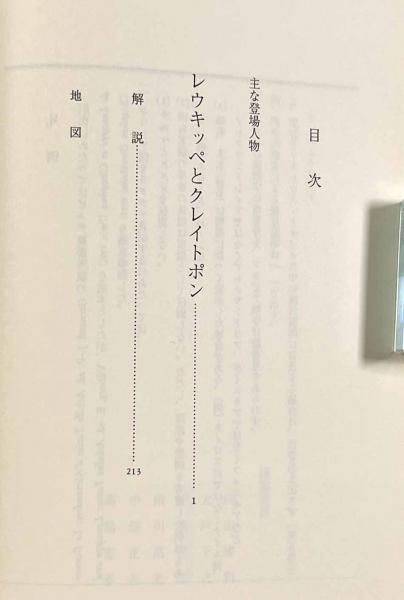 目次
主な登場人物
レウキッペとクレイトポン……………………………1
解説……………………………213
地図